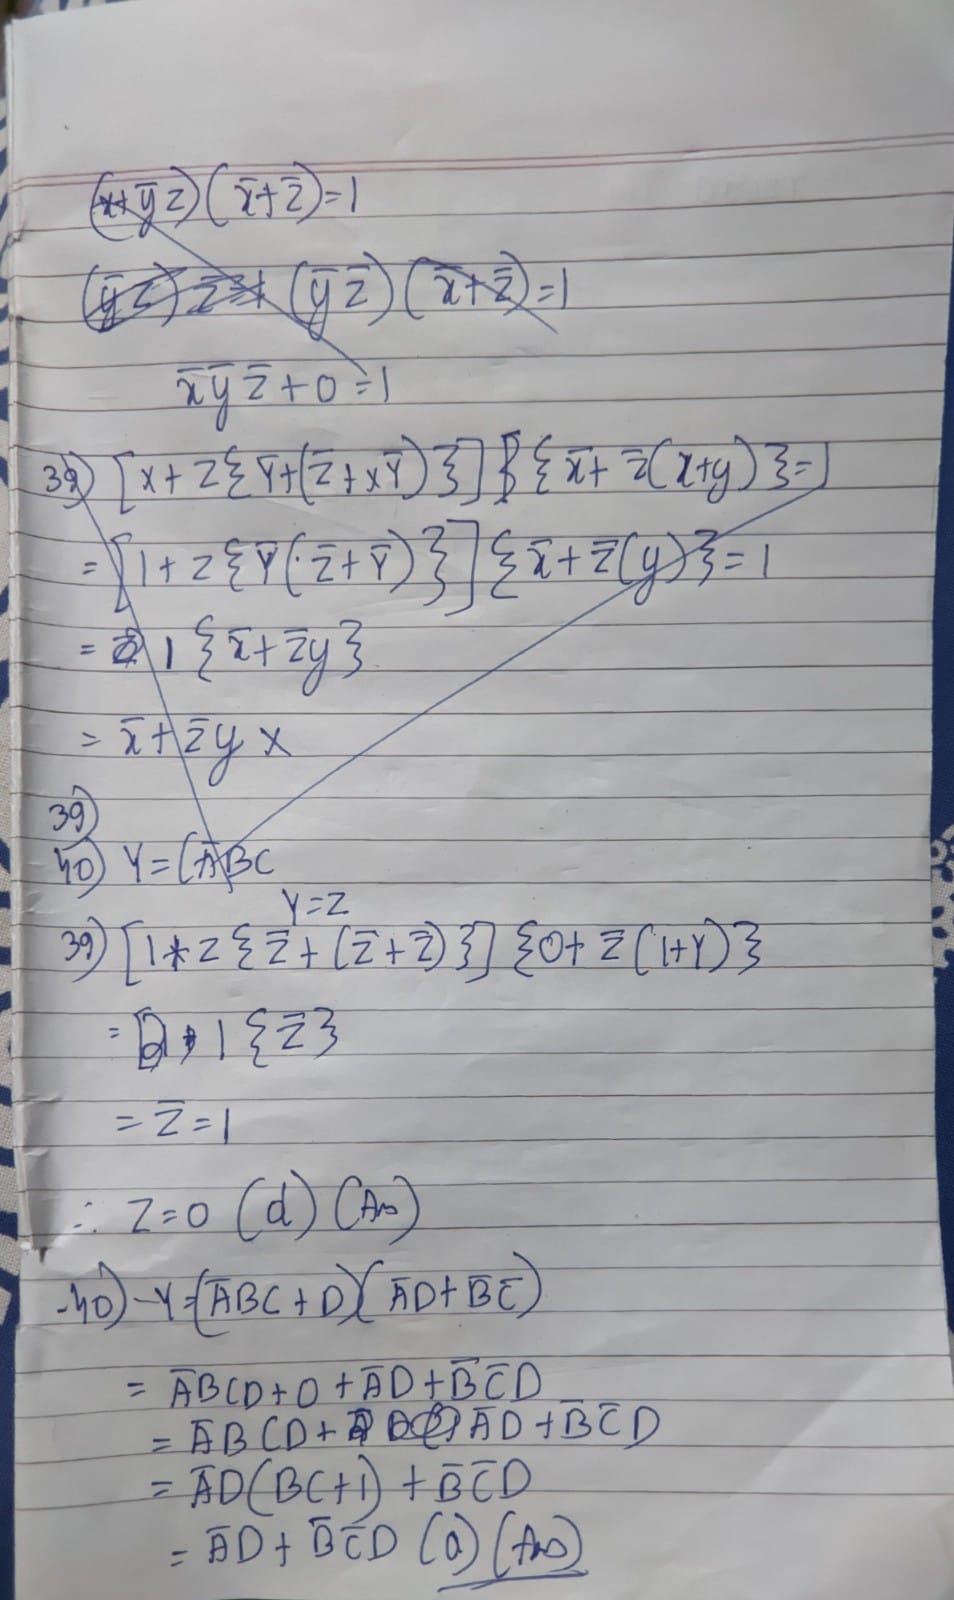 (x+y̅z)(x̅+z̅)=1
(y̅z̅)(x̅+z̅)=1
x̅y̅z̅+0=1
39) [x+z{Y̅+(z̅+xY̅)}]{x̅+z̅(x+y)}=1
=[1+z{Y̅(z̅+Y̅)}]{x̅+z̅(y)}=1
= 1{x̅+z̅y}
= x̅+z̅y x
39)
40) Y=(A̅BC
Y=Z
39) [1+z{z̅+(z̅+z̅)}]{0+z̅(1+Y)}
= 1{z̅}
= z̅=1
∴ z=0 (d) (Ans)
40) Y=(A̅BC+D)(A̅D+B̅C̅)
= A̅BCD+0+A̅D+B̅C̅D
= A̅BCD+A̅D+B̅C̅D
= A̅D(BC+1)+B̅C̅D
= A̅D+B̅C̅D (a) (Ans)